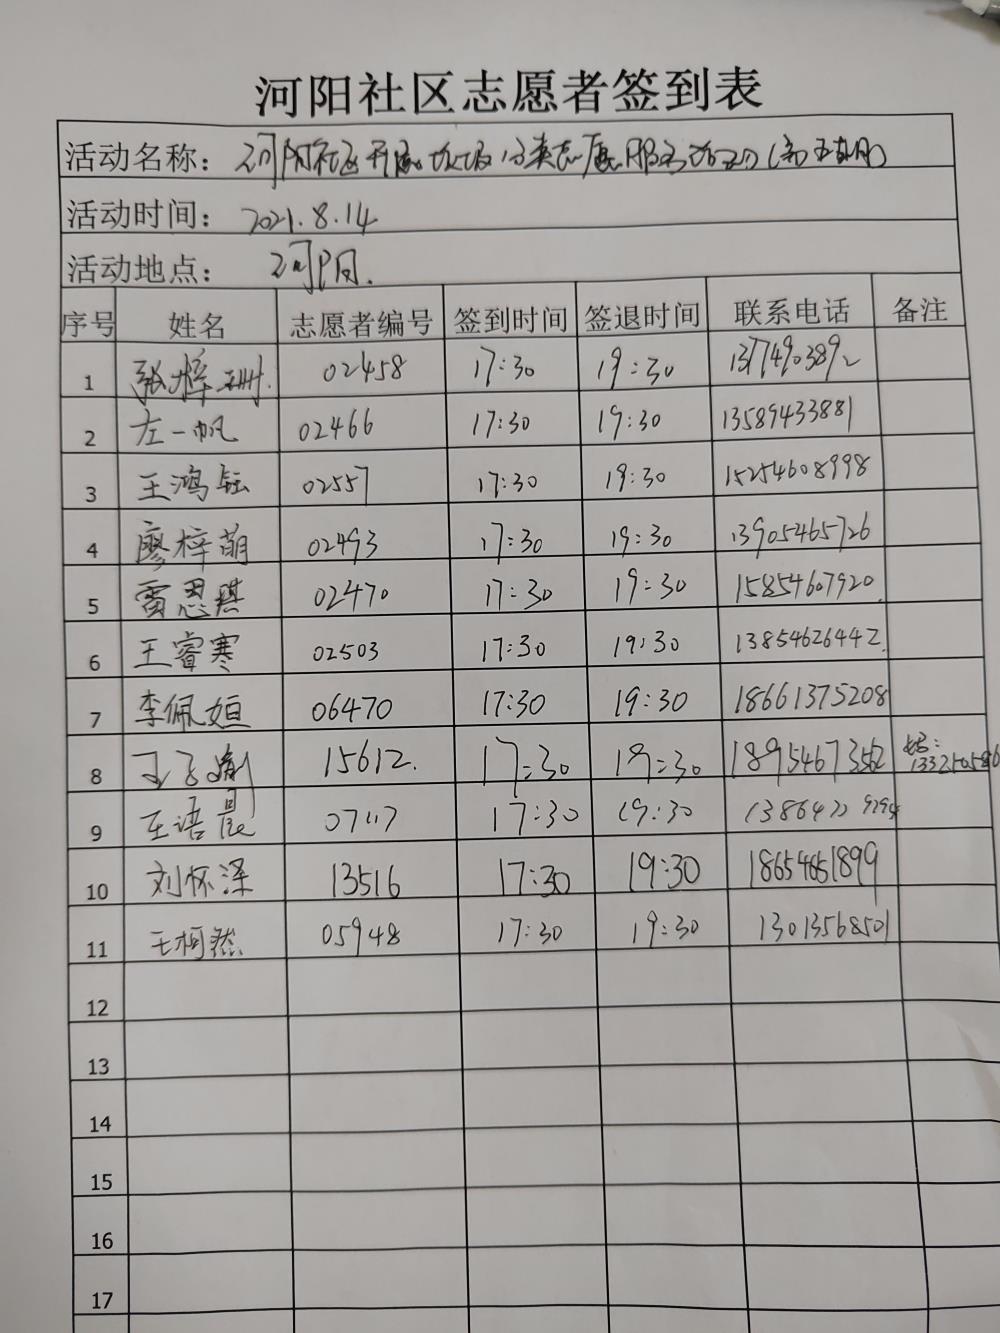 河阳社区志愿者签到表
活动名称：河阳社区开展垃圾分类志愿服务活动
活动时间：2021.8.14
活动地点：河阳.
序号 姓名 志愿者编号 签到时间 签退时间 联系电话 备注
1 张梓珊. 02458 17:30 19:30 13774903892
2 左一帆 02466 17:30 19:30 13589433881
3 王鸿钰 02557 17:30 19:30 15254608998
4 廖梓萌 02493 17:30 19:30 13905465726
5 雷思琪 02470 17:30 19:30 15854607920
6 王睿寒 02503 17:30 19:30 13854626442.
7 李佩姮 06470 17:30 19:30 18661375208
8 15612. 17:30 19:30
9 王语晨 07117 17:30 19:30
10 刘怀泽 13516 17:30 19:30 18654651899
11 王柯然 05948 17:30 19:30 13013568501
12
13
14
15
16
17